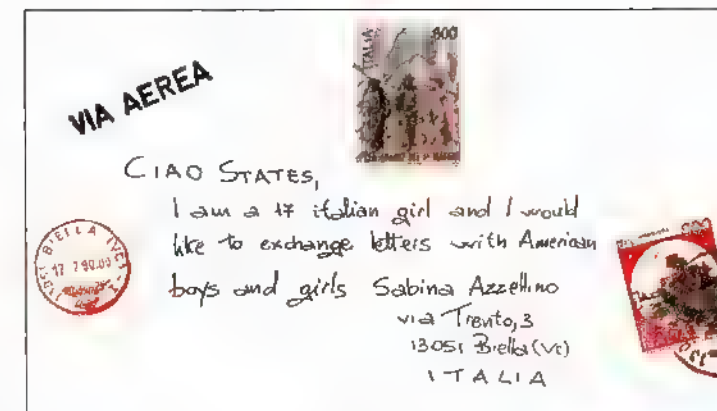 ITALIA
600
VIA AEREA
CIAO STATES,
I am a 17 italian girl and I would
like to exchange letters with American
boys and girls Sabina Azzellino
via Trento, 3
13051 Biella (VC)
ITALIA
BIELLA (VC)